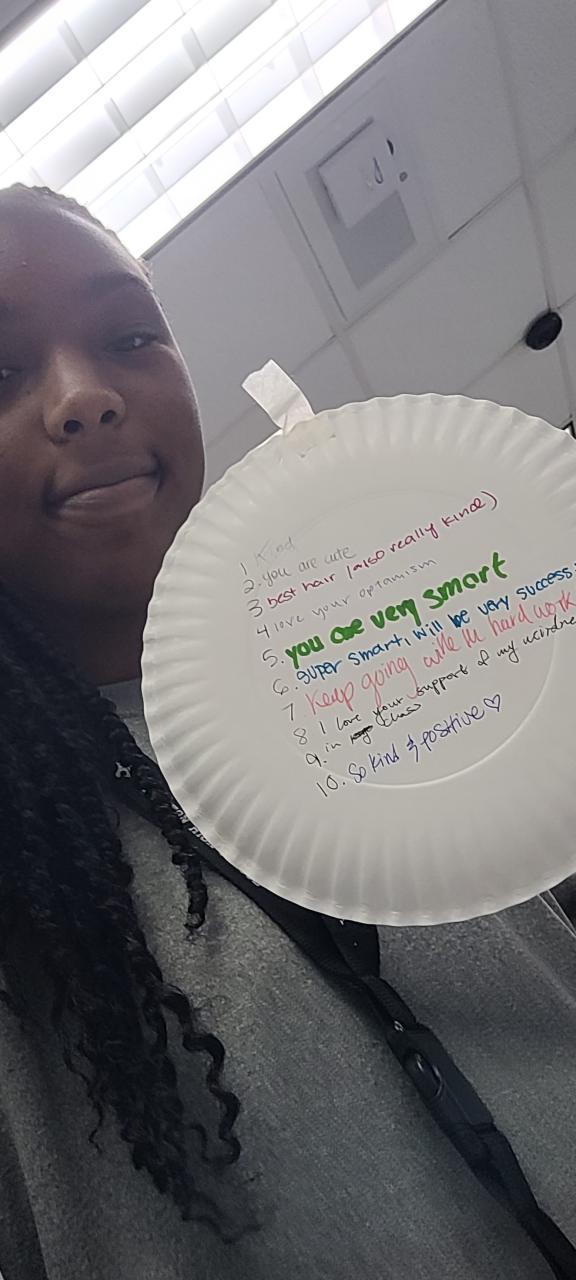 1 Kind
2. you are cute
3 best hair (also really kind)
4 love your optamism
5. you are very smart
6. super smart, will be very success
7 Keep going with the hard work
8 I love your support of my weirdne
9. in class
10. So kind & positive ♡